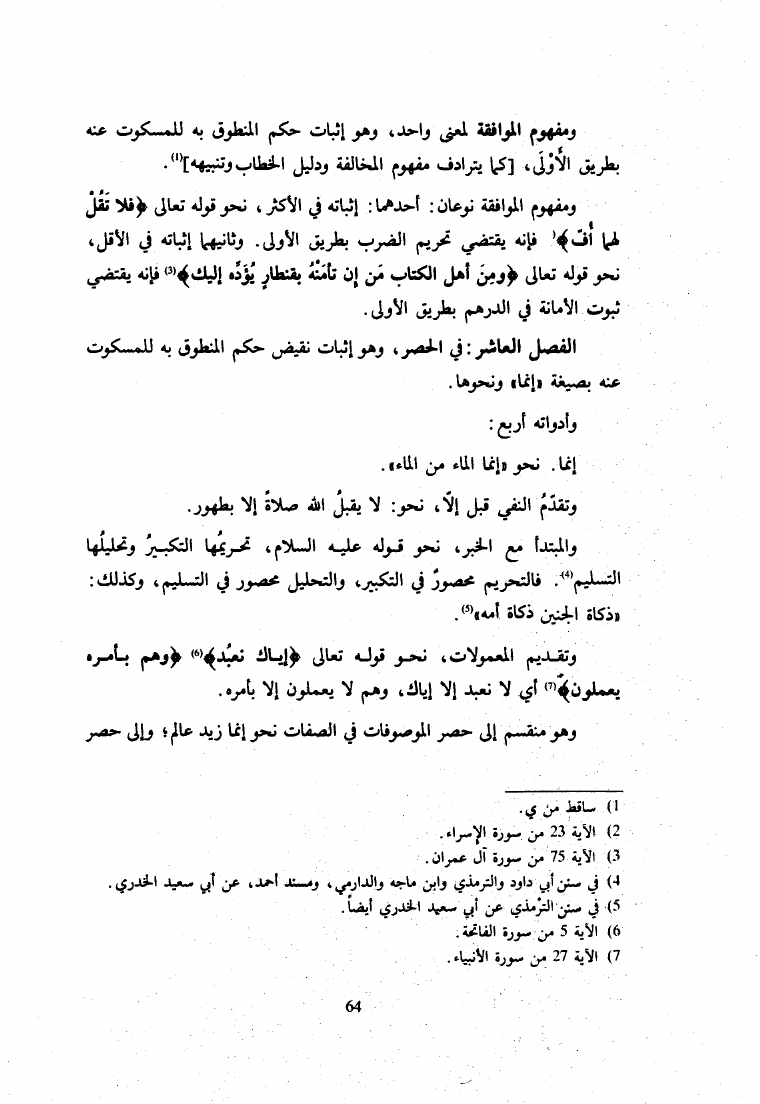 ومفهوم الموافقة لمعنى واحد، وهو إثبات حكم المنطوق به للمسكوت عنه
بطريق الأَوْلَى، [كما يترادف مفهوم المخالفة ودليل الخطاب وتنبيهه](1).
ومفهوم الموافقة نوعان: أحدهما: إثباته في الأكثر، نحو قوله تعالى ﴿فلا تَقُلْ
لهما أُفّ﴾( فإنه يقتضي تحريم الضرب بطريق الأولى. وثانيهما إثباته في الأقل،
نحو قوله تعالى ﴿ومِنَ أهل الكتاب مَن إن تأمَنْهُ بقنطارٍ يُؤَدِّه إليك﴾(3) فإنه يقتضي
ثبوت الأمانة في الدرهم بطريق الأولى.
الفصل العاشر: في الحصر، وهو إثبات نقيض حكم المنطوق به للمسكوت
عنه بصيغة «إنما» ونحوها.
وأدواته أربع:
إنما. نحو «إنما الماء من الماء».
وتقدّمُ النفي قبل إلاّ، نحو: لا يقبلُ الله صلاةً إلا بطهور.
والمبتدأ مع الخبر، نحو قوله عليه السلام، تحريمُها التكبيرُ وتحليلُها
التسليم(4). فالتحريم محصورٌ في التكبير، والتحليل محصور في التسليم، وكذلك:
«ذكاة الجنين ذكاة أمه»(5).
وتقديم المعمولات، نحو قوله تعالى ﴿إياك نعبُد﴾(6) ﴿وهم بأمره
يعملون﴾(7) أي لا نعبد إلا إياك، وهم لا يعملون إلا بأمره.
وهو منقسم إلى حصر الموصوفات في الصفات نحو إنما زيد عالم؛ وإلى حصر
1) ساقط من ي.
2) الآية 23 من سورة الإسراء.
3) الآية 75 من سورة آل عمران.
4) في سنن أبي داود والترمذي وابن ماجه والدارمي، ومسند أحمد، عن أبي سعيد الخدري.
5) في سنن الترمذي عن أبي سعيد الخدري أيضاً.
6) الآية 5 من سورة الفاتحة.
7) الآية 27 من سورة الأنبياء.
64